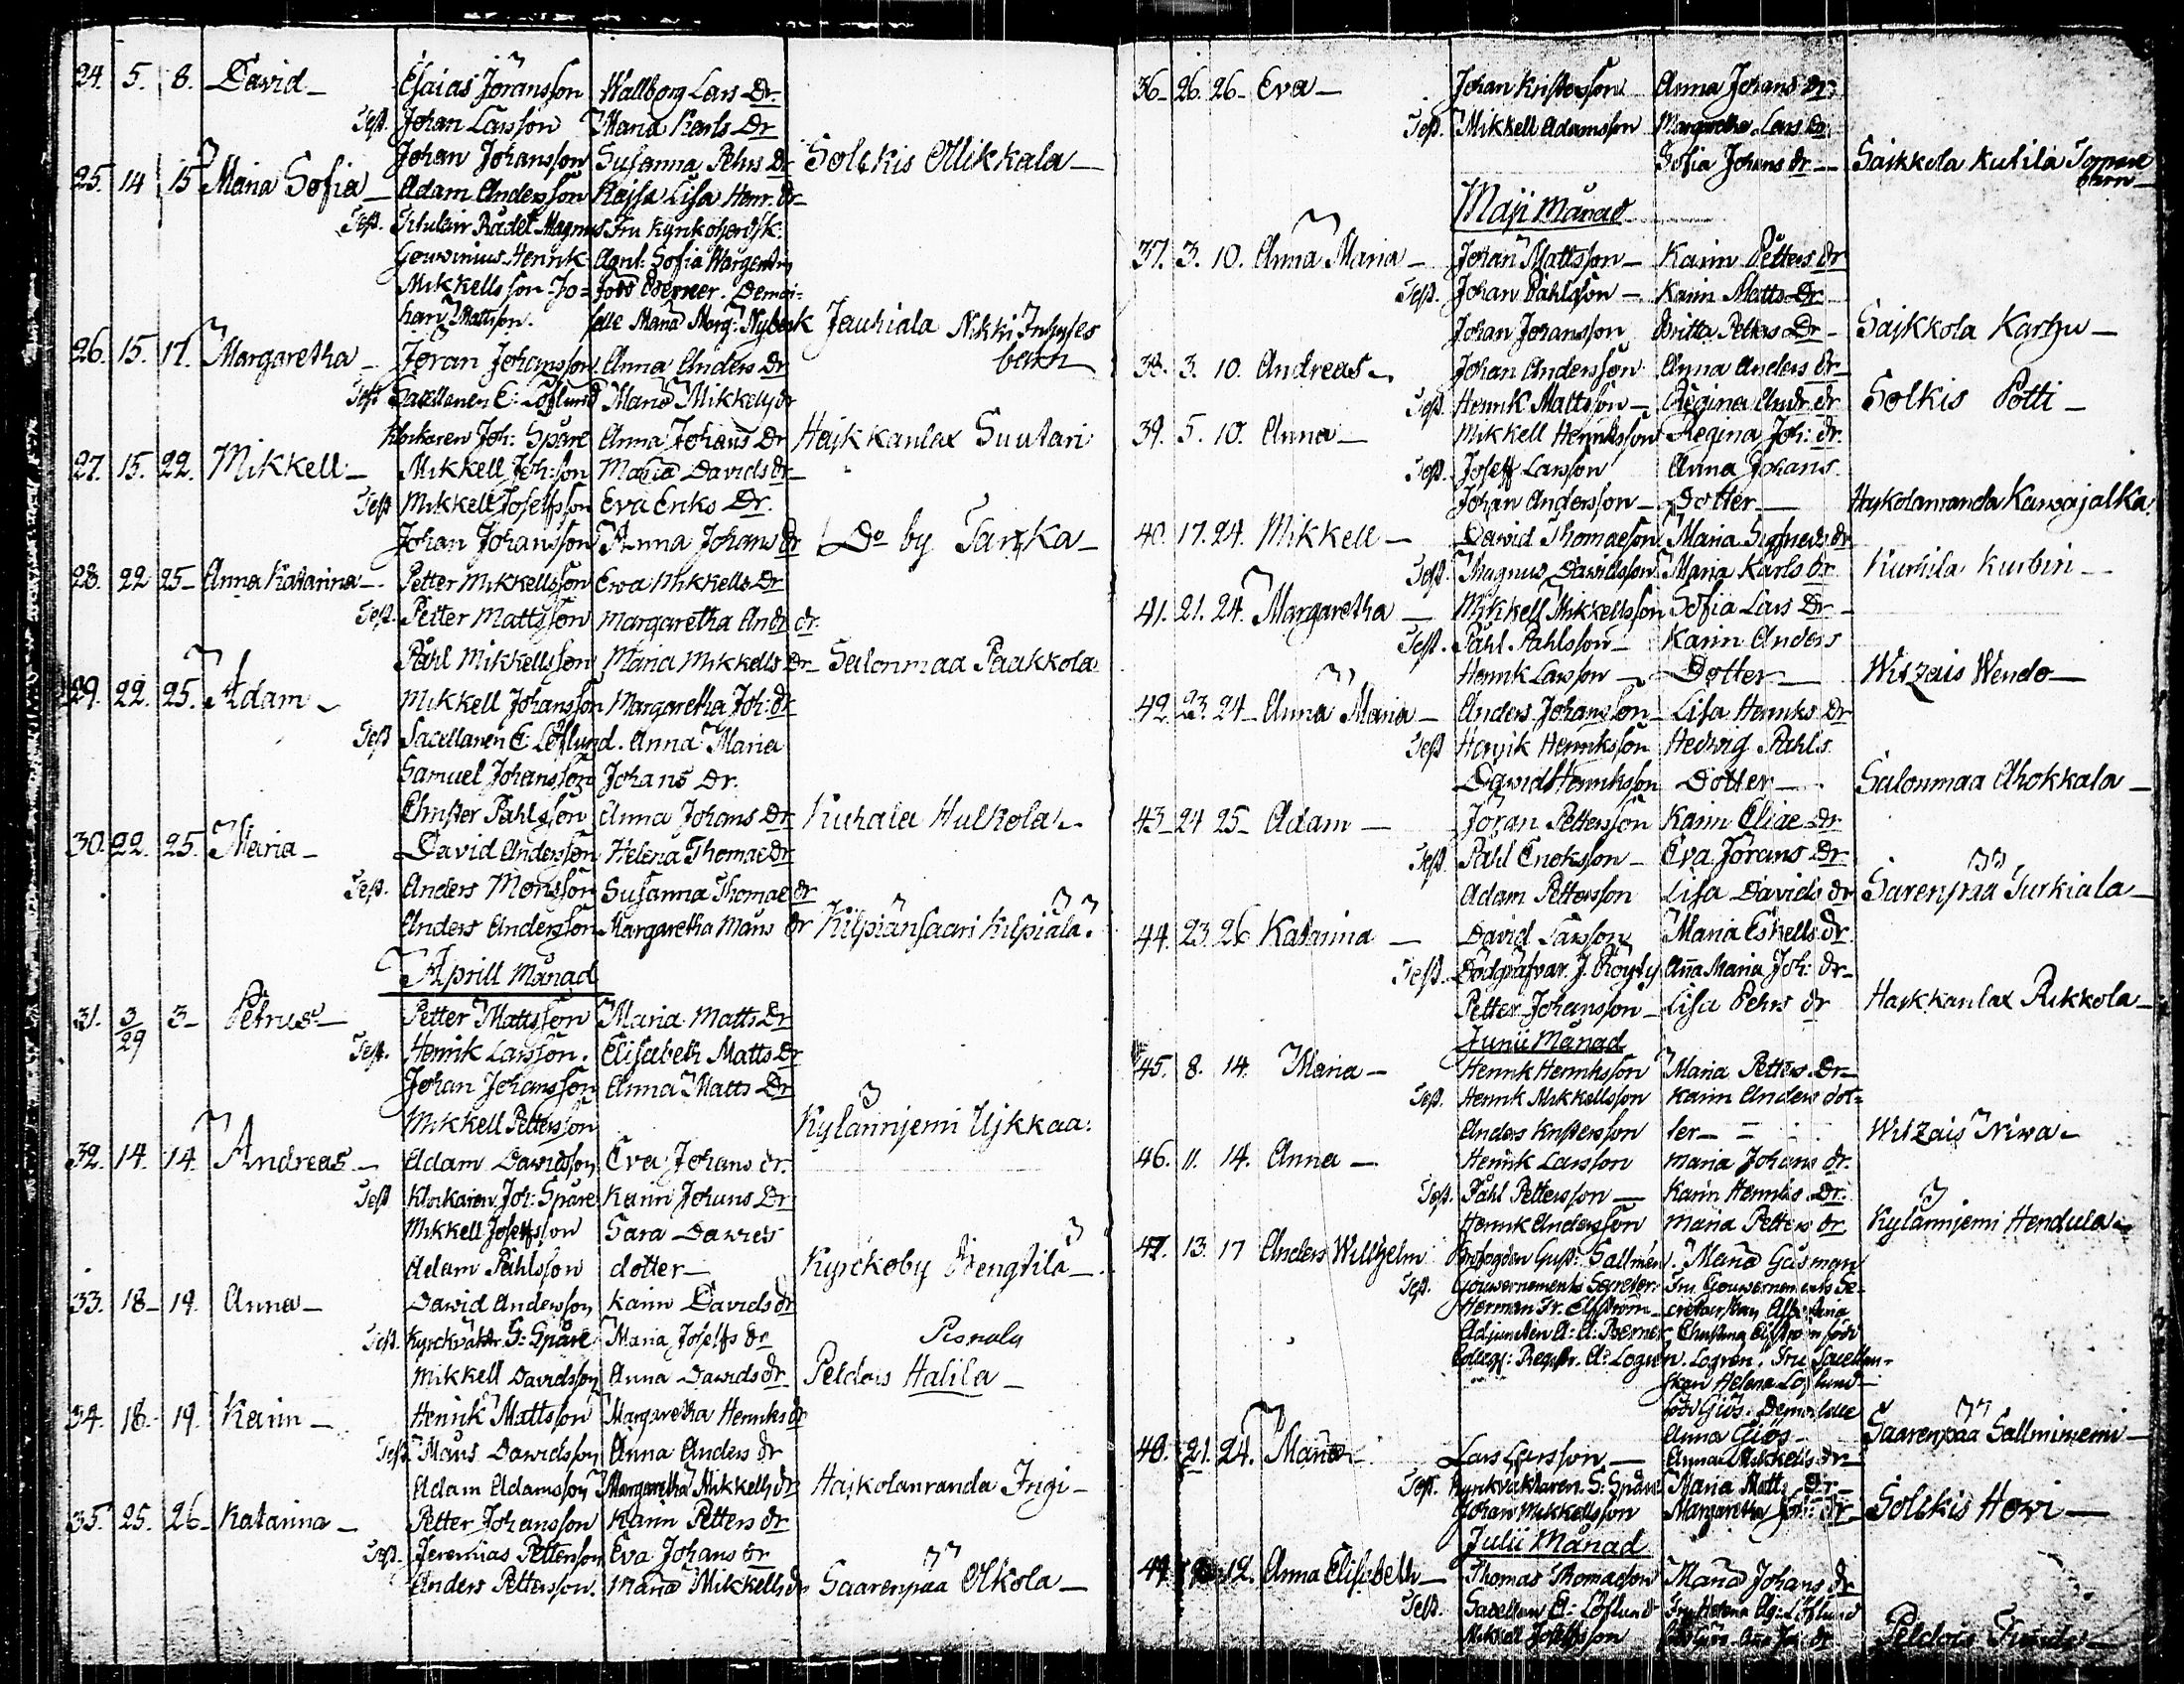 24. 5. 8. David Esaias Jöransson Wallborg Lars Dr.
Test. Johan Larsson Maria Karls Dr
Johan Johansson Susanna Pehrs Dr Solckis Ollikkala
25. 14 15 Maria Sofia Adam Andersson Kajsa Lisa Henr. dr
Test. Titulair Rådet Magnus Fru Kyrkoherdsk.
Henrik Agnt. Sofia Wargentin
Mikkellsson Jo= född Berner. Demoi=
han Mattson. selle Maria Marg: Nyberk Jauhiala Nikki Inhyses
barn
26. 15. 17. Margaretha Jöran Johansson Anna Anders Dr
Test Sacellanen E: Löflund Maria Mikkels dr
Klockaren Joh: Spåre Anna Johans Dr Hajkkanlax Suutari
27. 15. 22. Mikkell Mikkell Joh:son Maria Davids dr
Test Mikkell Josefsson Eva Eriks Dr.
Johan Johansson Anna Johans dr Do by Tanska
28. 22 25 Anna Katarina Petter Mikkellsson Ewa Mikkells Dr
Test. Petter Mattsson Margaretha Andr dr.
Påhl Mikkellsson Maria Mikkells Dr Salonmaa Paakkola
29. 22. 25. Adam Mikkell Johansson Margaretha Joh: dr
Test Sacellanen E: Löflund. Anna Maria
Samuel Johansson Johans Dr.
Christer Påhlsson Anna Johans Dr Kuhala Hulkola
30. 22. 25. Maria David Andersson Helena Thomae dr
Test. Anders Monsson Susanna Thomae dr
Anders Andersson Margaretha Måns dr Kilpiänsaari Kilpiälä.
Aprill Månad
31. 3/29 3 Petrus Petter Mattsson Maria Matts Dr
Test. Henrik Larsson. Elisabeth Matts Dr
Johan Johansson Anna Matts Dr
Mikkell Pettersson Kylänniemi Ujkkaa.
32. 14. 14. Andreas Adam Davidsson Eva Johans dr.
Test Klockaren Joh: Spåre Karin Johans Dr
Mikkell Josefsson Sara Davids
Adam Påhlsson dotter Kyrckoby Bengtilä
33. 18 19. Anna David Andersson Karin Davids dr
Test. Kyrckväktr S: Spåre Maria Josefs dr
Mikkell Davidsson Anna Davids dr Peldois Halila
34. 18. 19. Karin Henrik Mattsson Margaretha Henriks dr
Test. Måns Davidsson Anna Anders dr
Adam Adamsson Margaretha Mikkells dr Hajkolanranda Ingi
35. 25. 26 Katarina Petter Johansson Karin Petters dr
Test. Jeremias Pettersson Eva Johans dr
Anders Pettersson. Maria Mikkells dr Saarenpää Olkola
36 26. 26 Eva Johan Kristersson Anna Johans dr
Test. Mikkell Adamsson Margaretha Lars Dr.
Sofia Johans dr Saikkola Kutila
barn
Maji Månad
37. 3. 10. Anna Maria Johan Mattsson Karin Petters dr
Test. Johan Påhlsson Karin Matts Dr
Johan Johansson Britta Petters Dr Sajkkola Karhu
38. 3. 10. Andreas Johan Andersson Anna Anders dr
Test. Henrik Mattsson Regina Andr. dr Solkis Potti
39. 5. 10. Anna Mikkell Henriksson Regina Joh: dr.
Test. Joseff Larsson Anna Johans
Johan Andersson Dotter Hajkolanranda Kanajalka
40. 17. 24. Mikkell David Thomaeson Maria dr
Test. Magnus Davidsson Maria Karls dr. Kurkila Kurbiri
41. 21. 24. Margaretha Mikkell Mikkellsson Sofia Lars Dr
Test. Påhl Påhlsson Karin Anders
Henrik Larsson Dotter Witzais Wendo
42 23. 24 Anna Maria Anders Johansson Lisa Henriks dr
Test Henrik Henriksson Hedvig Påhls
David Henriksson Dotter Salonmaa Ahokkala
43 24 25 Adam Jöran Pettersson Karin Eliae Dr
Test. Påhl Ericksson Eva Jörans Dr
Adam Pettersson Lisa Davids dr Sarenpää Turkiala
44. 23 26 Katarina David Larsson Maria Eskells dr.
Test. Dödgräfvar. J. Röysky Aña Maria Joh: dr
Petter Johansson Lisa Pehrs dr Hajkkanlax Rikkola
Junii Månad
45. 8. 14. Maria Henrik Henriksson Maria Petters Dr
Test. Henrik Mikkellsson Karin Anders dot=
Anders Kristersson ter Witzais Niwa
46. 11. 14. Anna Henrik Larsson Maria Johans dr.
Test. Påhl Pettersson Karin Henriks Dr.
Henrik Andersson Maria Petters dr Kylänniemi Hendula
47. 13. 17 Anders Willhelm Gust: Sallmén. Maria Gåsman
Test. Gouvernements Secreter: Fru Gouvernements Se-
Herman Fr. Elfström
Adjuncten A: A: Berner Christina Elfström född
Colleg: Regist. A: Logrén. Logrén. Fru Sacellan-
skan Helena Löflund
född Giös. Demoiselle
Anna Giös Saarenpää Sallminiemi
48. 21. 24. Maria Lars Larsson Anna Mikkels dr
Test. Kyrckväktaren S: Spåre Maria Matts Dr
Johan Mikkellsson Margaretha Joh: dr Solckis Howi
Julii Månad
49. 12. Anna Elisabeth Thomas Thomaeson Maria Johans dr
Test. Sacellan E: Löflund Fru Helena Löflund
Mikkell Josefsson Peldois